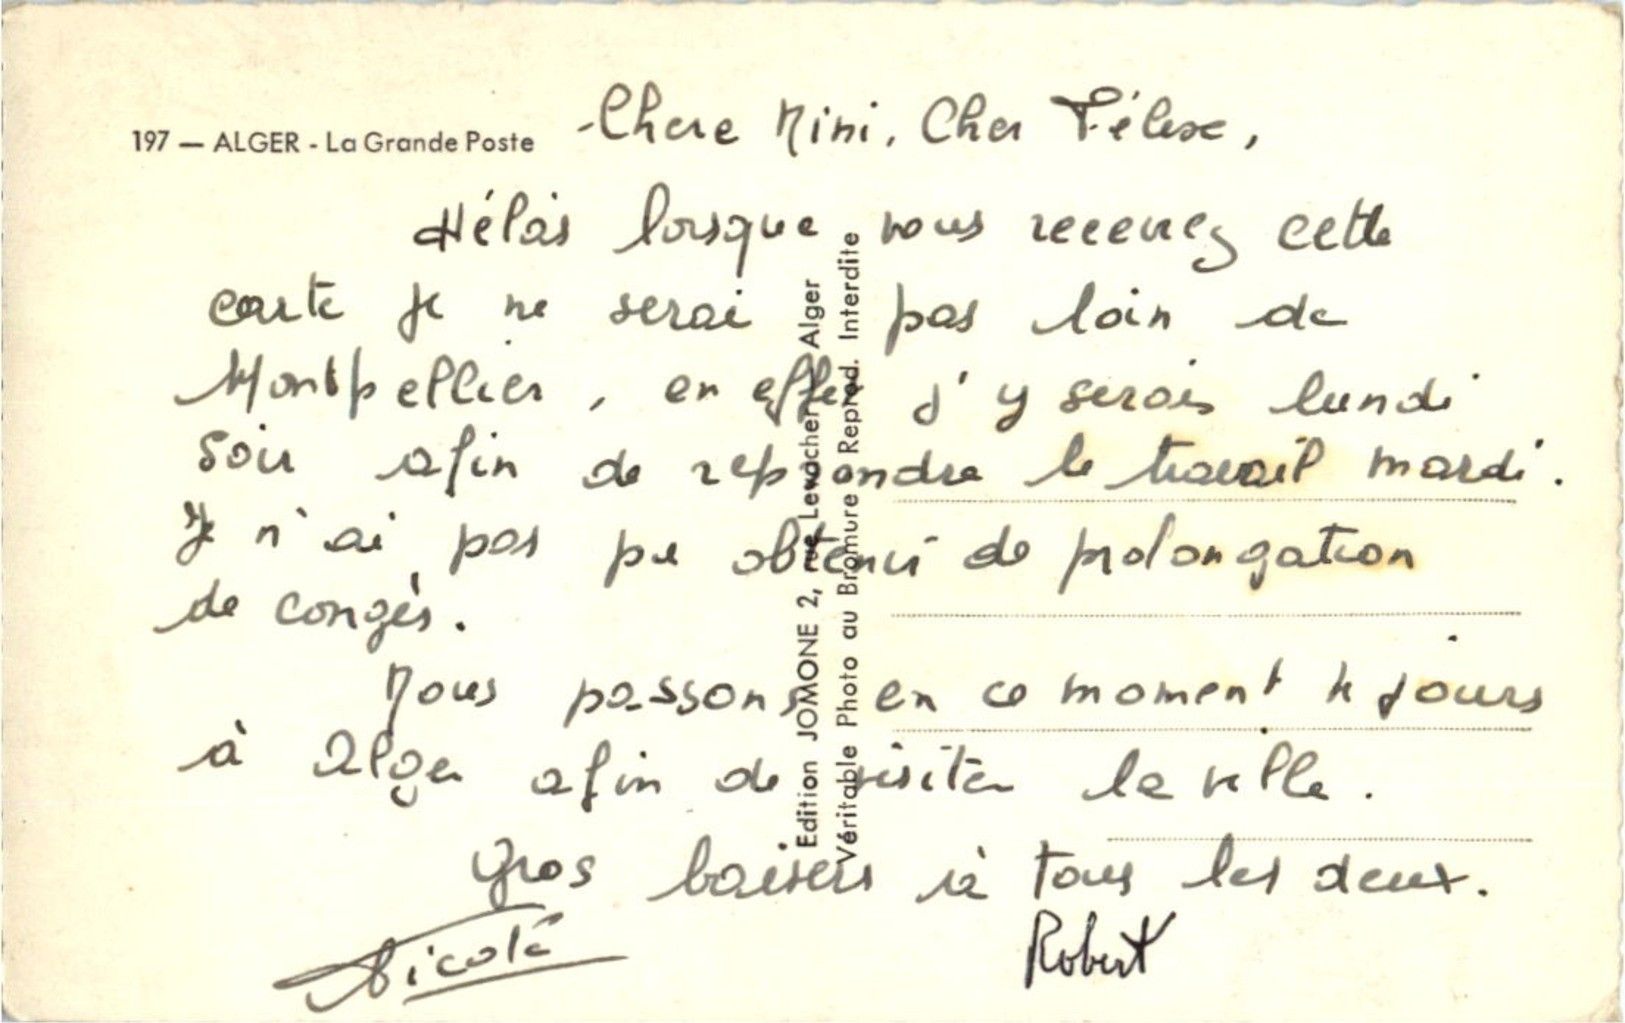 197 — ALGER - La Grande Poste
Chere Mini, Cher Félix,
Hélas lorsque vous recevrez cette
carte je ne serai pas loin de
Montpellier, en effet j'y serais lundi
soir afin de reprendre le travail mardi.
Je n'ai pas pu obtenir de prolongation
de congés.
Nous passons en ce moment 4 jours
à Alger afin de visiter la ville.
Gros baisers à tous les deux.
Nicole
Robert
Edition JOMONE 2, rue Levacher Alger
Véritable Photo au Bromure Reprod. Interdite